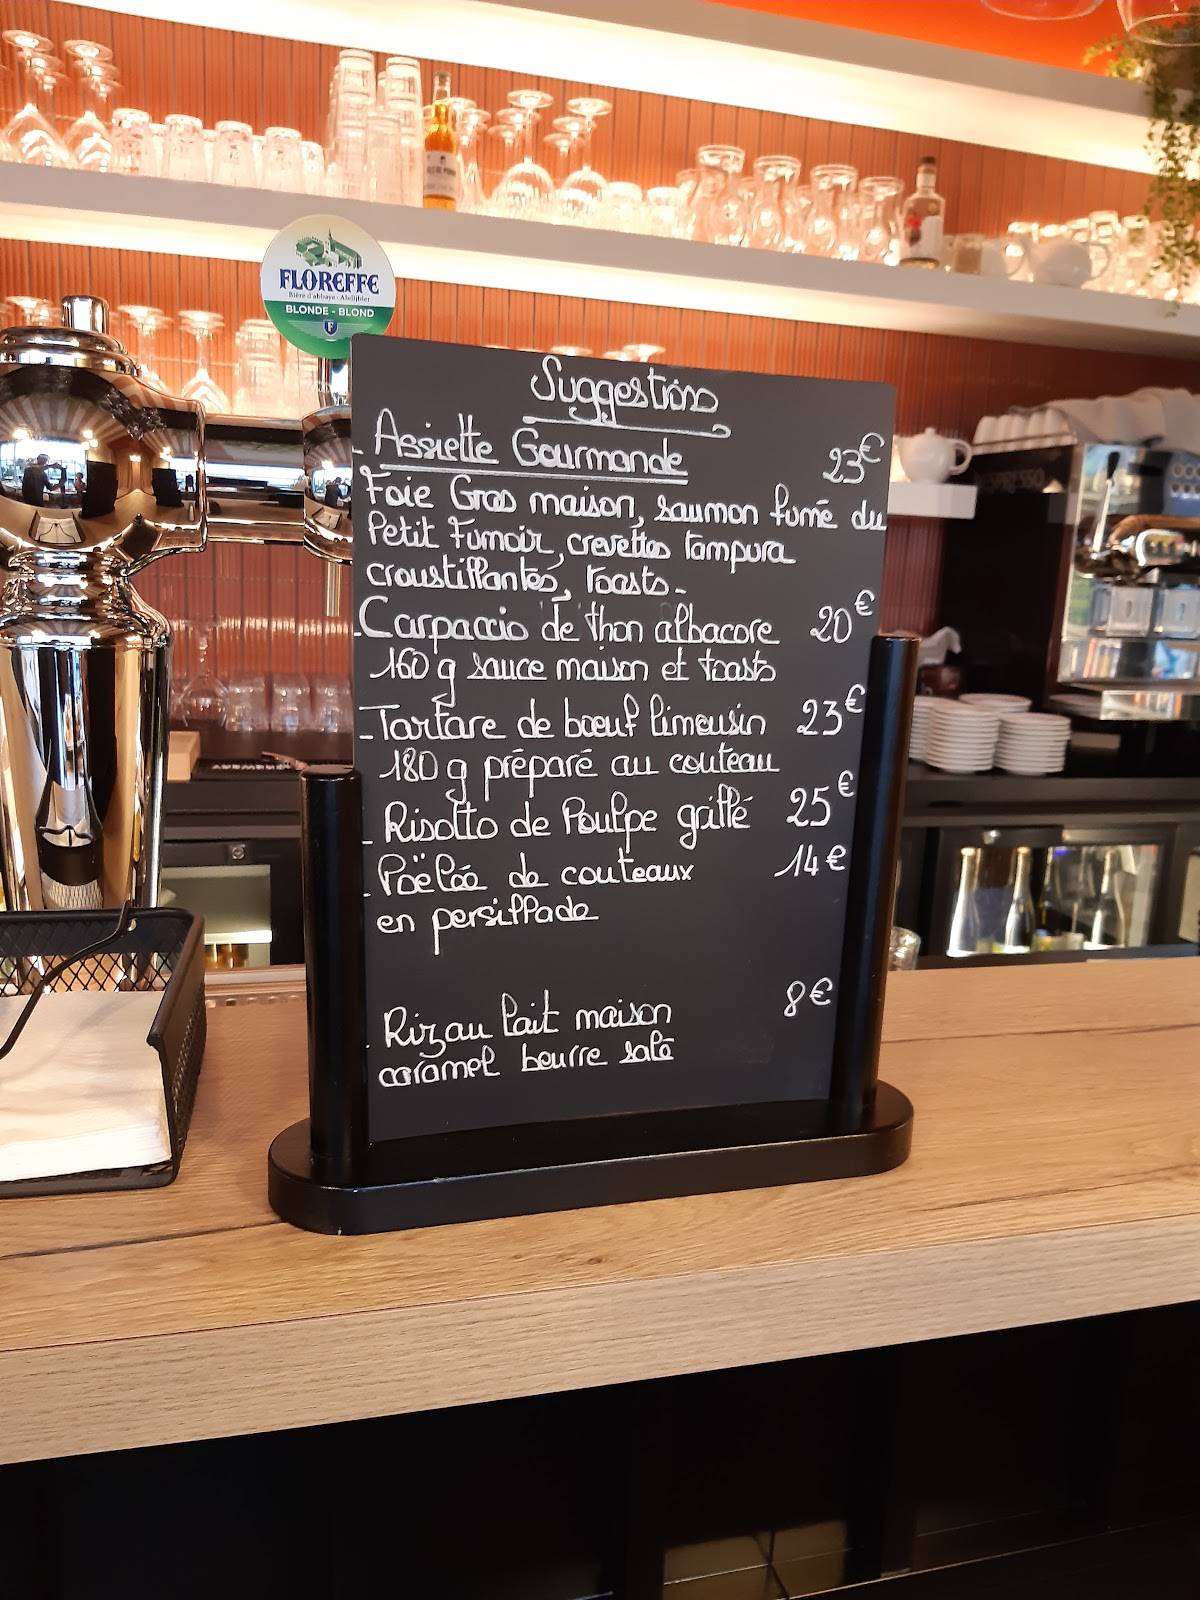 FLOREFFE
Bière d'abbaye - Abdijbier
BLONDE - BLOND
F
Suggestions
- Assiette Gourmande 23€
Foie Gras maison, saumon fumé du
Petit Fumoir, crevettes tampura
croustillantes, toasts.
- Carpaccio de thon albacore 20€
160 g sauce maison et toasts
- Tartare de bœuf limousin 23€
180 g préparé au couteau
- Risotto de Poulpe grillé 25€
- Poëlée de couteaux 14€
en persillade
- Riz au lait maison 8€
caramel beurre salé